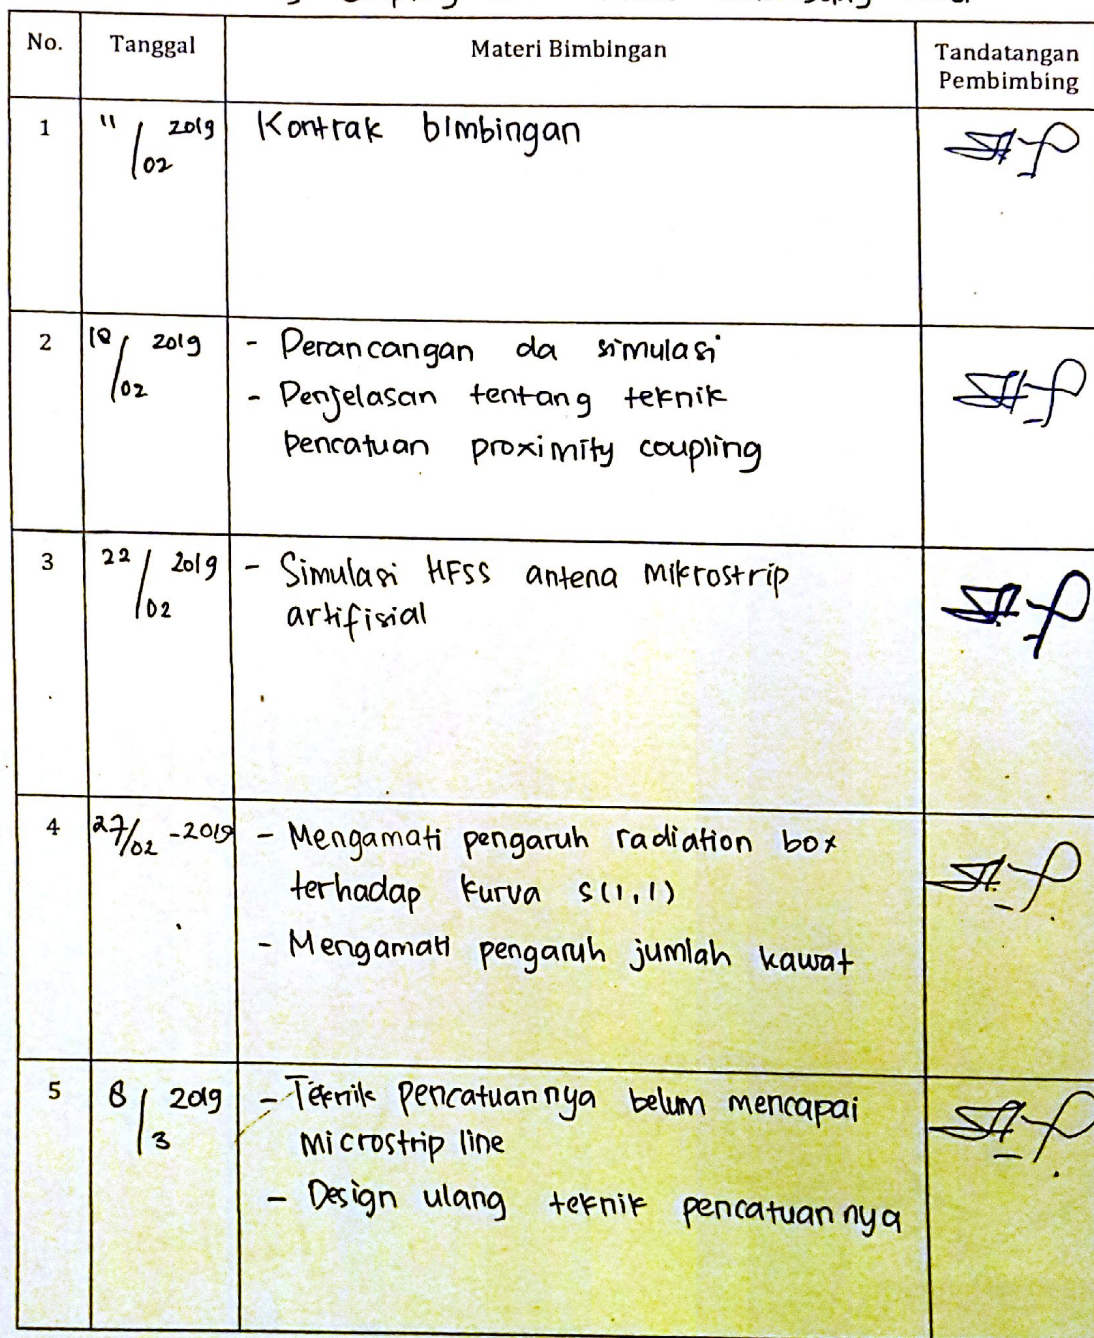 coupling
No. Tanggal Materi Bimbingan Tandatangan
Pembimbing
1 11/02 2019 Kontrak bimbingan
2 18/02 2019 - Perancangan da simulasi
- Penjelasan tentang teknik
pencatuan proximity coupling
3 22/02 2019 - Simulasi HFSS antena mikrostrip
artifisial
4 27/02 -2019 - Mengamati pengaruh radiation box
terhadap kurva S(1,1)
- Mengamati pengaruh jumlah kawat
5 8/3 2019 - Teknik pencatuannya belum mencapai
microstrip line
- Design ulang teknik pencatuannya